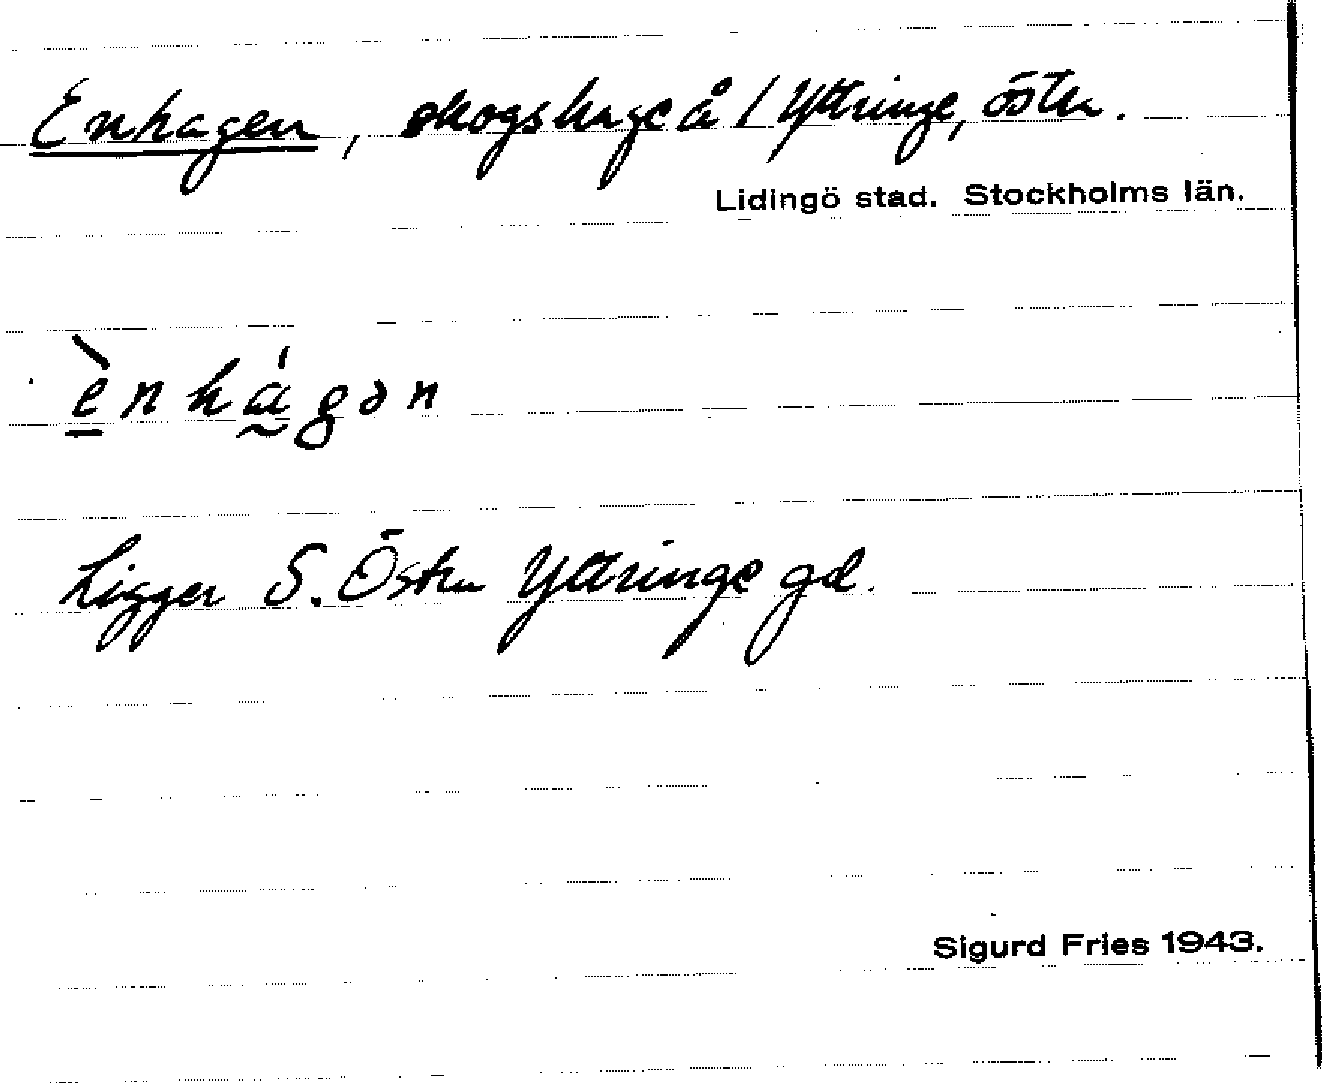 Enhagen, skogshage å / Yttringe, öster.
Lidingö stad. Stockholms län.
ènhágən
Ligger S. Östra Yttringe gd.
Sigurd Fries 1943.